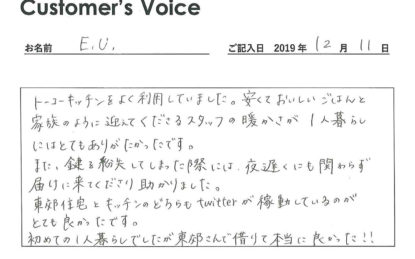 Customer's Voice
お名前 E.U. ご記入日 2019年 12月 11日
トーコーキッチンをよく利用していました。安くておいしいごはんと
家族のように迎えてくださるスタッフの暖かさが1人暮らし
にはとてもありがたかったです。
また、鍵を紛失してしまった際には、夜遅くにも関わらず
届けに来てくださり助かりました。
東郊住宅とキッチンのどちらもtwitterが稼動しているのが
とても良かったです。
初めての1人暮らしでしたが東郊さんで借りて本当に良かった!!